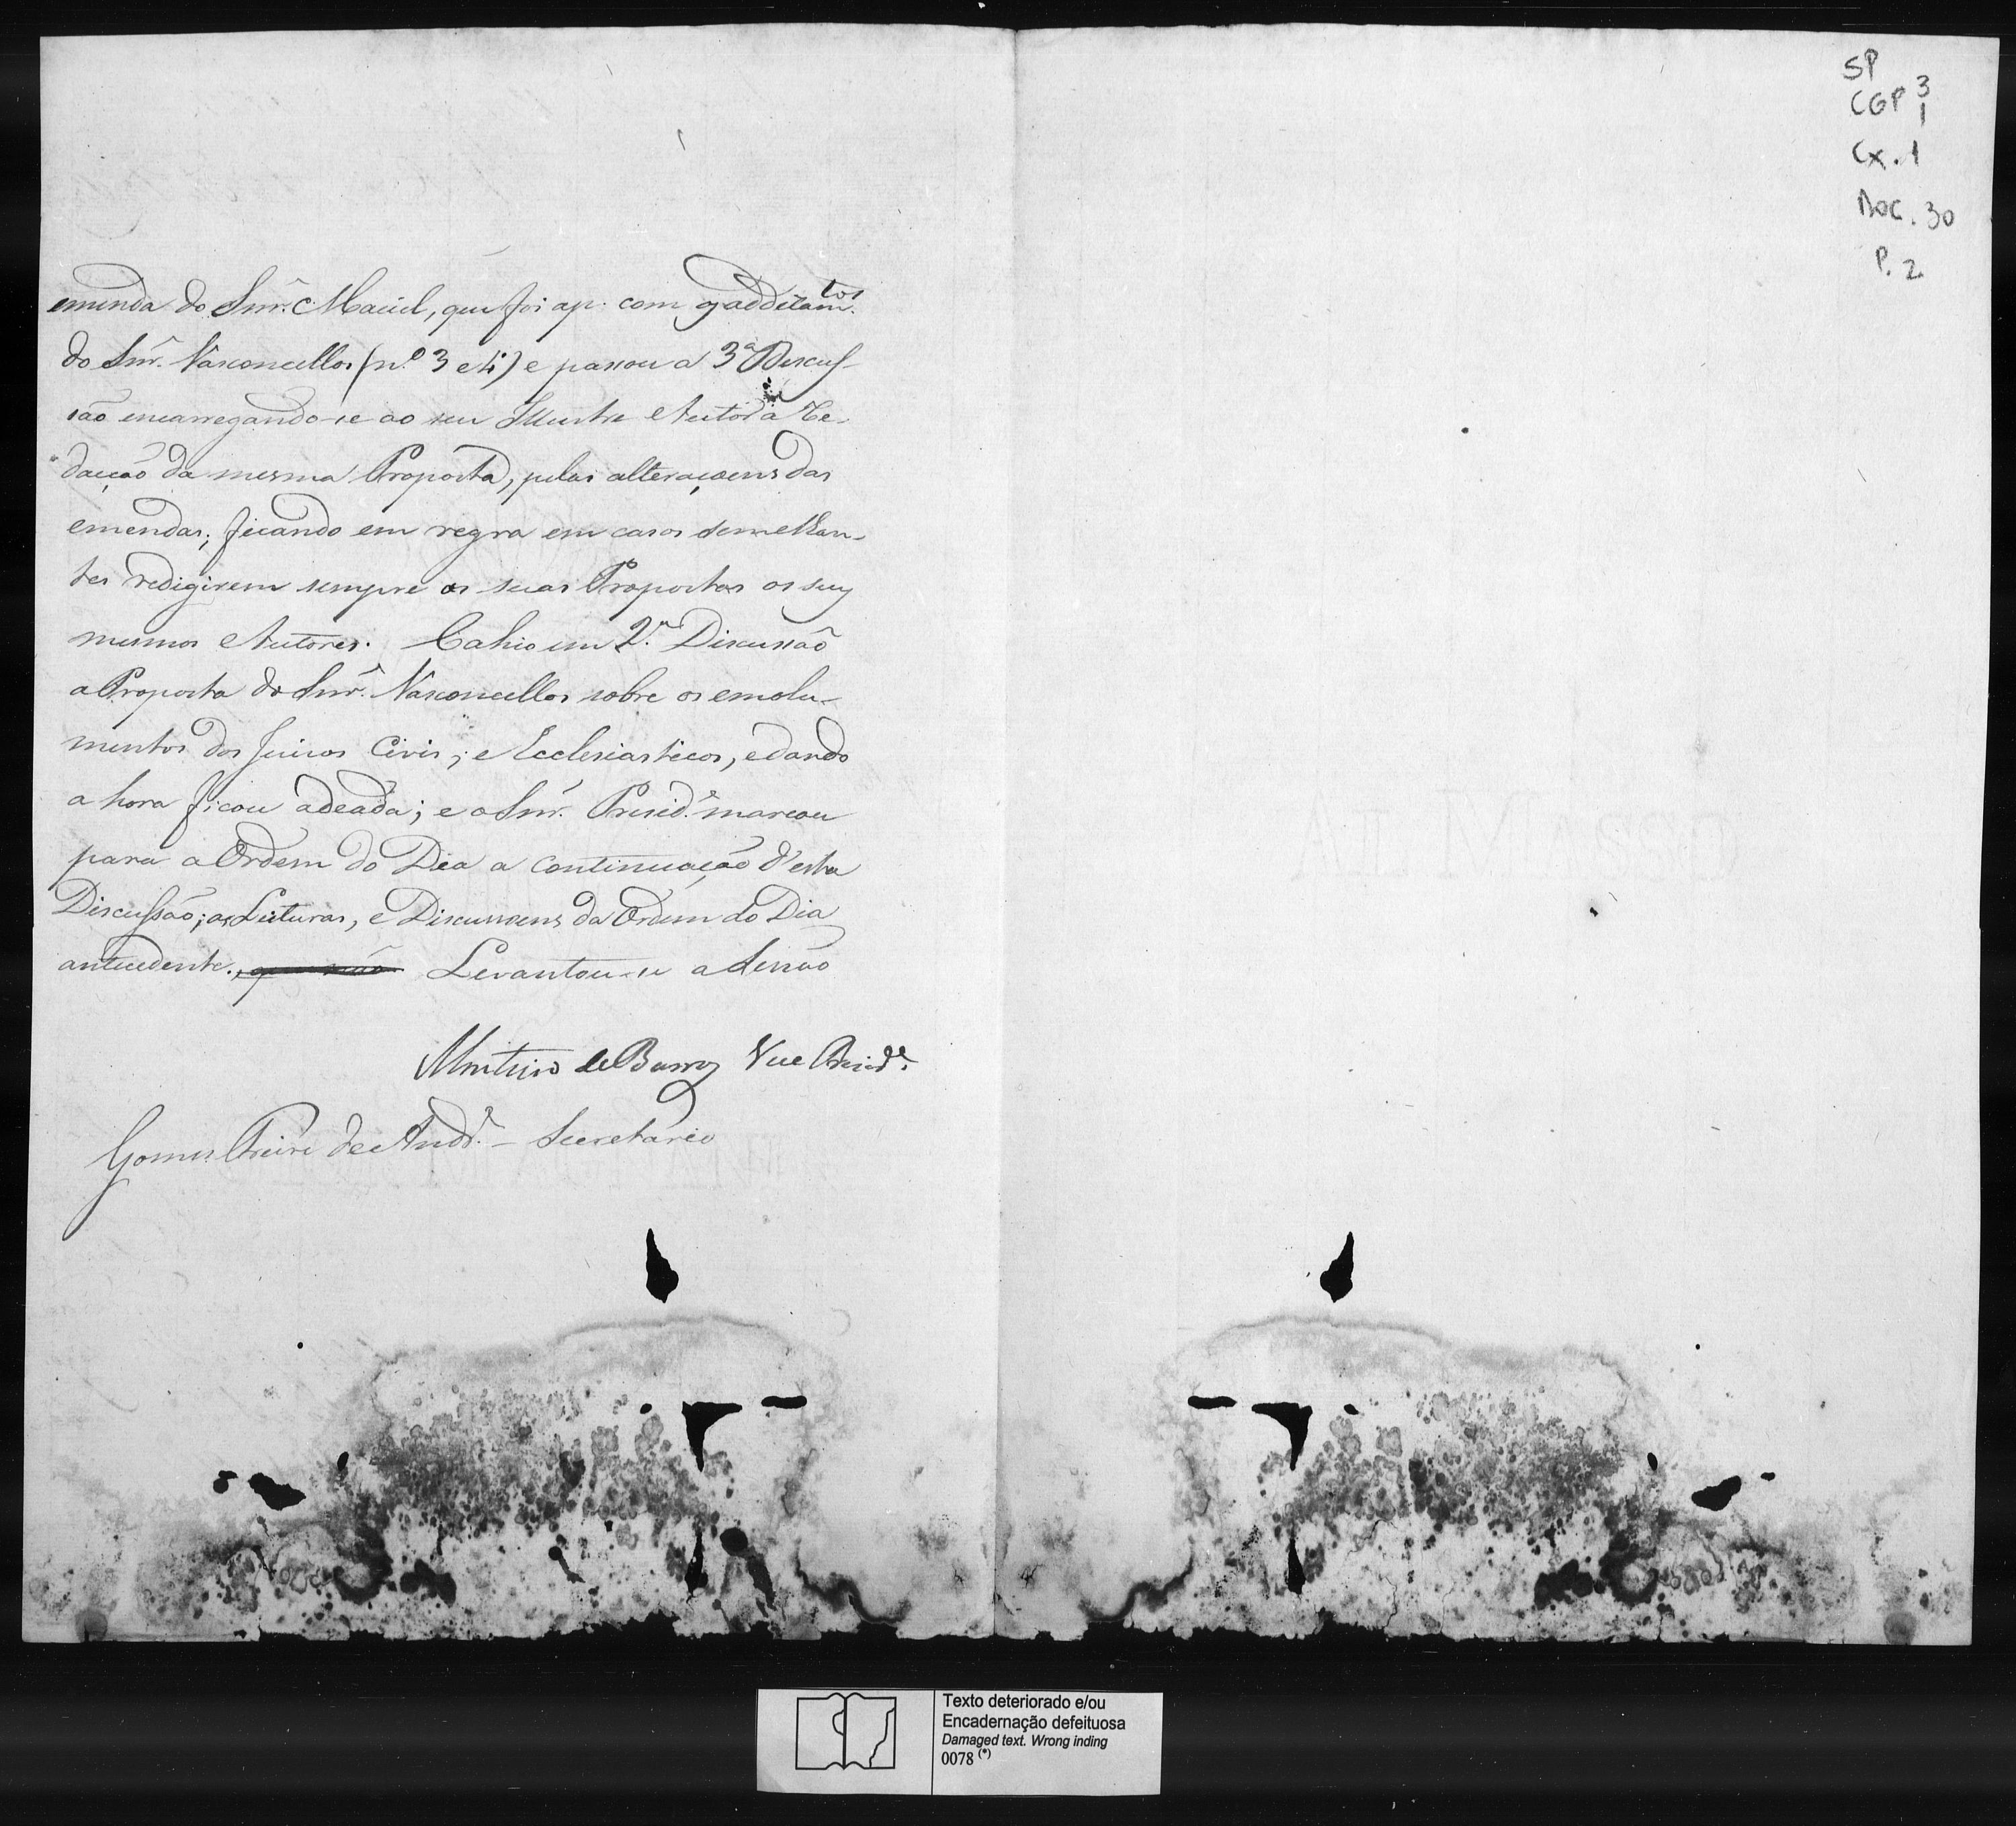 emenda do Snr. Maciel, que foi ap. com os additam.tos
do Snr. Vasconcellos (n.º 3 e 4) e passou a 3ª Discus-
são encarregando-se ao seu Illustre Autor a Re-
dacção da mesma Proposta, pelas alteraçoens das
emendas; ficando em regra em casos semelhan-
tes redigirem sempre as suas Propostas os seus
mesmos Autores. Cahio em 2.ª Discussão
a Proposta do Snr. Vasconcellos sobre os emolu-
mentos dos Juizos Civis, e Ecclesiasticos, e dando
a hora ficou adeada; e o Snr. Presid.e marcou
para a Ordem do Dia a continuação d'esta
Discussão; as Leituras, e Discussoens da Ordem do Dia
antecedente. Levantou-se a Sessão
Monteiro de Barros Vice Presid.e
Gomes Freire de Andr.e - Secretario
SP
CGP 3
1
Cx. 1
Doc. 30
P. 2
Texto deteriorado e/ou
Encadernação defeituosa
Damaged text. Wrong inding
0078 (*)